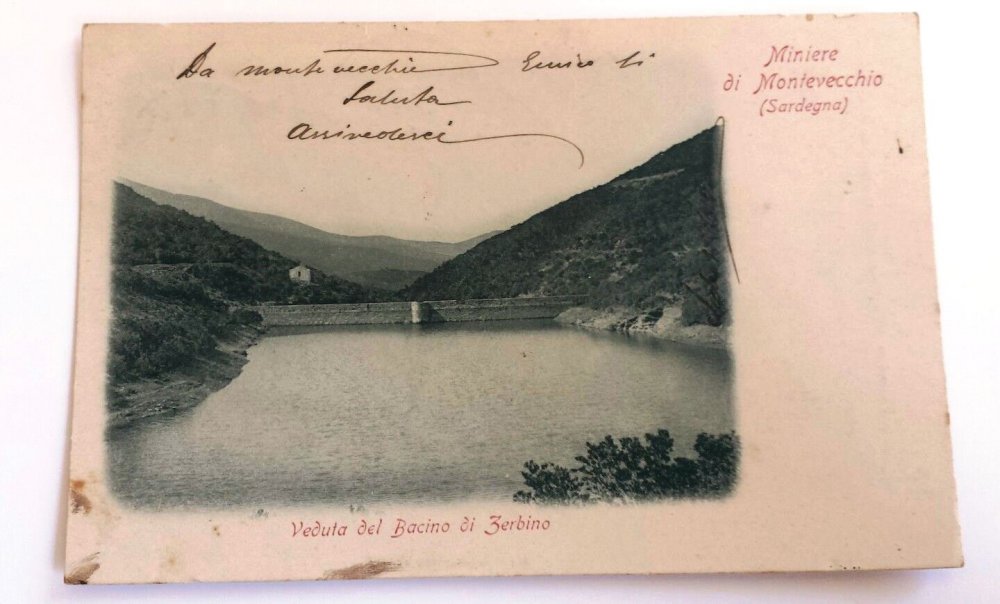 Da montevecchio Enrico li
Saluta
Arrivederci
Miniere
di Montevecchio
(Sardegna)
Veduta del Bacino di Zerbino